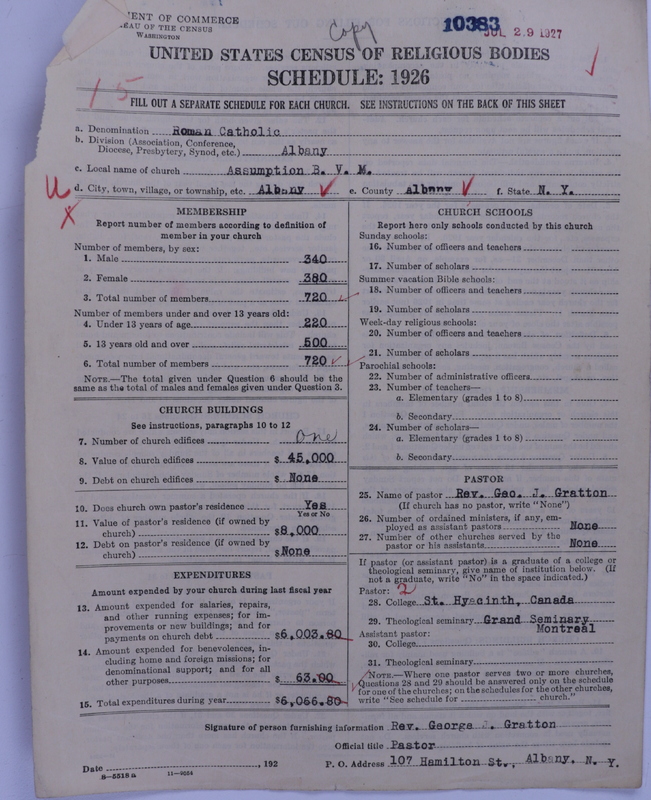 ENT OF COMMERCE
EAU OF THE CENSUS
WASHINGTON
Copy
10383
JUL 29 1927
UNITED STATES CENSUS OF RELIGIOUS BODIES
SCHEDULE: 1926
15
FILL OUT A SEPARATE SCHEDULE FOR EACH CHURCH. SEE INSTRUCTIONS ON THE BACK OF THIS SHEET
a. Denomination Roman Catholic
b. Division (Association, Conference, Diocese, Presbytery, Synod, etc.) Albany
c. Local name of church Assumption B. V. M.
d. City, town, village, or township, etc. Albany e. County Albany f. State N. Y.
MEMBERSHIP
Report number of members according to definition of
member in your church
Number of members, by sex:
1. Male 340
2. Female 380
3. Total number of members 720
Number of members under and over 13 years old:
4. Under 13 years of age 220
5. 13 years old and over 500
6. Total number of members 720
NOTE.—The total given under Question 6 should be the
same as the total of males and females given under Question 3.
CHURCH BUILDINGS
See instructions, paragraphs 10 to 12
7. Number of church edifices one
8. Value of church edifices $ 45,000
9. Debt on church edifices $ None
10. Does church own pastor's residence Yes
Yes or No
11. Value of pastor's residence (if owned by
church) $8,000
12. Debt on pastor's residence (if owned by
church) $None
EXPENDITURES
Amount expended by your church during last fiscal year
13. Amount expended for salaries, repairs,
and other running expenses; for im-
provements or new buildings; and for
payments on church debt $6,003.80
14. Amount expended for benevolences, in-
cluding home and foreign missions; for
denominational support; and for all
other purposes $ 63.00
15. Total expenditures during year $6,066.80
CHURCH SCHOOLS
Report here only schools conducted by this church
Sunday schools:
16. Number of officers and teachers
17. Number of scholars
Summer vacation Bible schools:
18. Number of officers and teachers
19. Number of scholars
Week-day religious schools:
20. Number of officers and teachers
21. Number of scholars
Parochial schools:
22. Number of administrative officers
23. Number of teachers—
a. Elementary (grades 1 to 8)
b. Secondary
24. Number of scholars—
a. Elementary (grades 1 to 8)
b. Secondary
PASTOR
25. Name of pastor Rev. Geo. J. Gratton
(If church has no pastor, write "None")
26. Number of ordained ministers, if any, em-
ployed as assistant pastors None
27. Number of other churches served by the
pastor or his assistants None
If pastor (or assistant pastor) is a graduate of a college or
theological seminary, give name of institution below. (If
not a graduate, write "No" in the space indicated.)
Pastor: 2
28. College St. Hyacinth, Canada
29. Theological seminary Grand Seminary
Montreal
Assistant pastor:
30. College
31. Theological seminary
NOTE.—Where one pastor serves two or more churches,
Questions 28 and 29 should be answered only on the schedule
for one of the churches; on the schedules for the other churches,
write "See schedule for church."
Signature of person furnishing information Rev. George J. Gratton
Official title Pastor
Date , 192 P. O. Address 107 Hamilton St., Albany. N. Y.
8-5518 a 11-9054